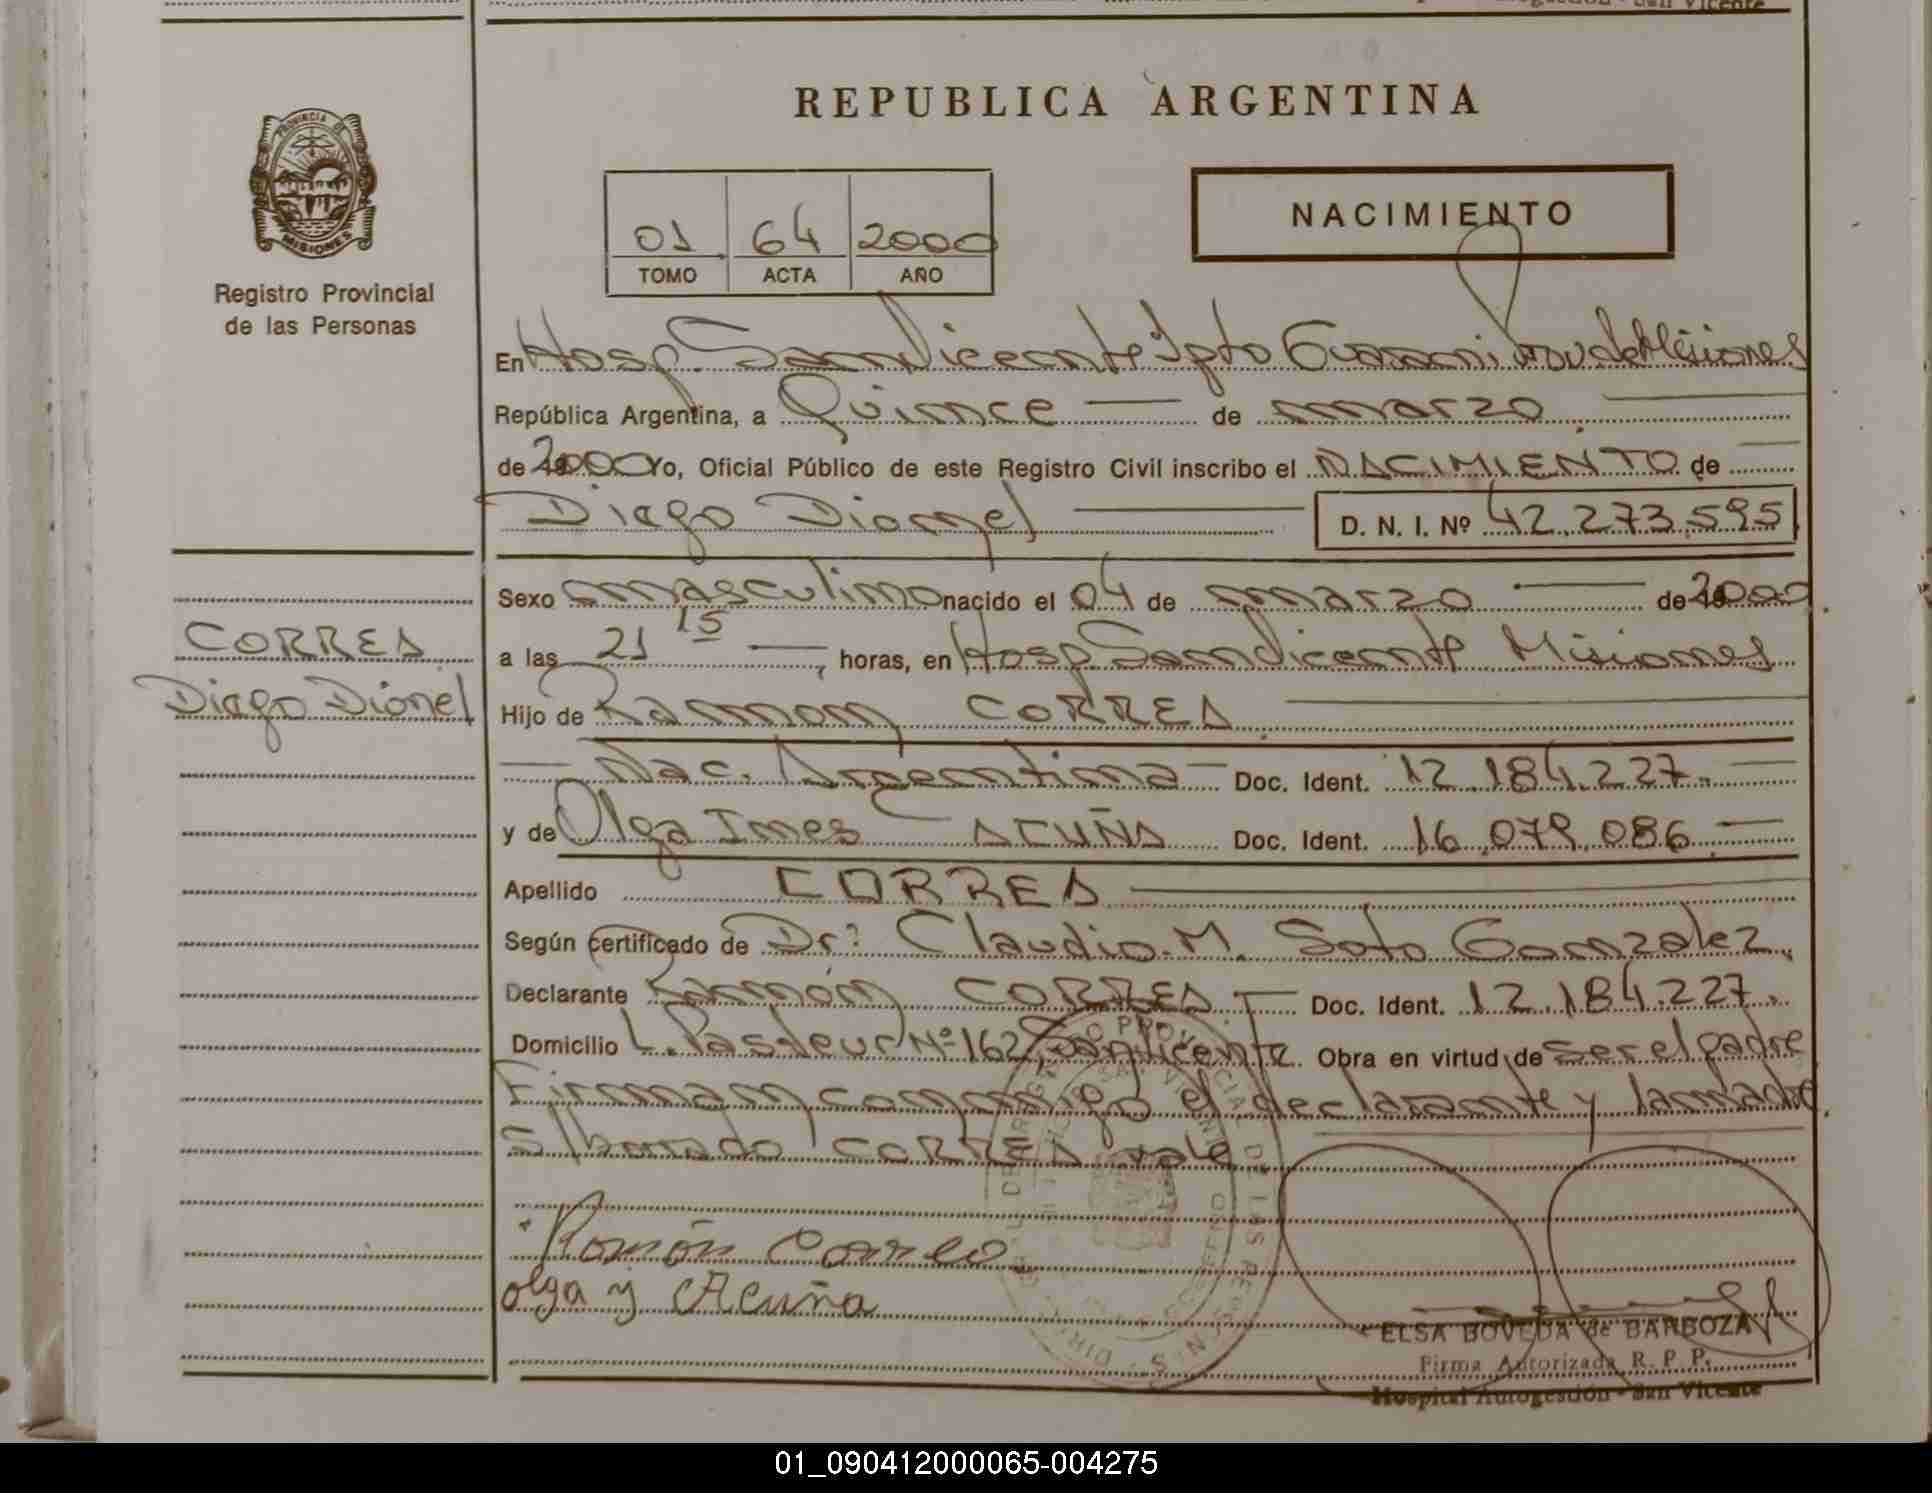 REPUBLICA ARGENTINA
PROVINCIA DE
MISIONES
Registro Provincial
de las Personas
01 64 2000
TOMO ACTA AÑO
NACIMIENTO
En Hosp. San Vicente Dpto Guarani Prov de Misiones
República Argentina, a Quince de marzo
de 2000 Yo, Oficial Público de este Registro Civil inscribo el NACIMIENTO de
Diego Dionel D. N. I. Nº 42.273.595
Sexo masculino nacido el 04 de marzo de 2000
a las 21 15 horas, en Hosp. San Vicente Misiones
CORREA
Diego Dionel
Hijo de Ramon CORREA
Nac. Argentina Doc. Ident. 12.184.227.
y de Olga Ines ACUÑA Doc. Ident. 16.079.086
Apellido CORREA
Según certificado de Dr: Claudio M. Soto Gonzalez
Declarante Ramón CORREA Doc. Ident. 12.184.227.
Domicilio L. Pasteur Nº 162 San Vicente Obra en virtud de ser el padre
Firman conmigo el declarante y la madre.
S/borrado CORREA vale
Ramón Correa
olga y Acuña
ELSA BOVEDA de BARBOZA
Firma Autorizada R. P. P.
Hospital Autogestión - San Vicente
01_090412000065-004275